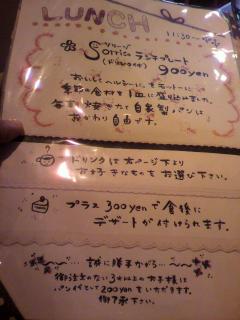 LUNCH
11:30〜
ソリーゾ
Sorriso ランチプレート
(ドリンク付) 900yen
おいしく ヘルシーに、をモットーに
季節の食材を1皿に盛り込みました。
毎日焼きたて自家製パンは
おかわり自由です。
ドリンクは本ページ下より
お好きなものをお選び下さい。
プラス 300yenで食後に
デザートが付けられます。
〜 誠に勝手ながら… 〜
御注文のない3才以上のお子様には
パン代として200yenをいただきます。
御了承下さい。